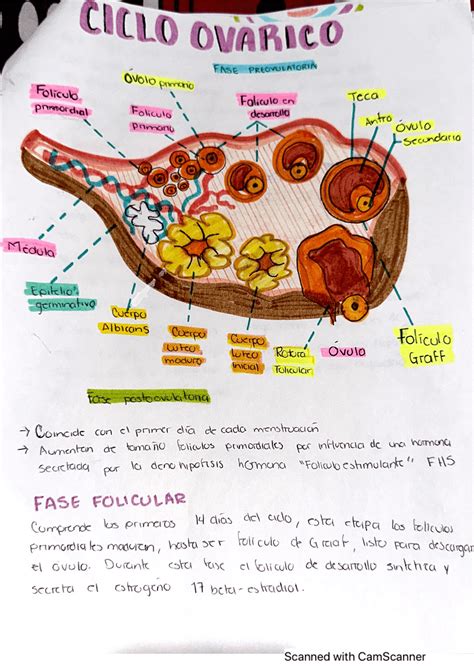 CICLO OVARICO
FASE PREOVULATORIA
Folículo primordial
Óvolo primario
Folículo primario
Folículo en desarrollo
Teca
Antro
Óvulo Secundario
Médula
Epitelio germinativo
Cuerpo Albicans
Cuerpo Luteo maduro
Cuerpo Luteo inicial
Rotura Folicular
Óvulo
Folículo Graff
Fase postovulatoria
→ Coincide con el primer día de cada menstruación
→ Aumentan de tamaño folículos primordiales por influencia de una hormona
secretada por la denohipófisis hormona "Folículo estimulante" FHS
FASE FOLICULAR
Comprende los primeros 14 días del ciclo, esta etapa los folículos
primordiales maduran, hasta ser folículo de Graaf, listo para descargar
el óvulo. Durante esta fase el folículo de desarrollo sintetiza y
secreta el estrogeno 17 beta-estradial.
Scanned with CamScanner